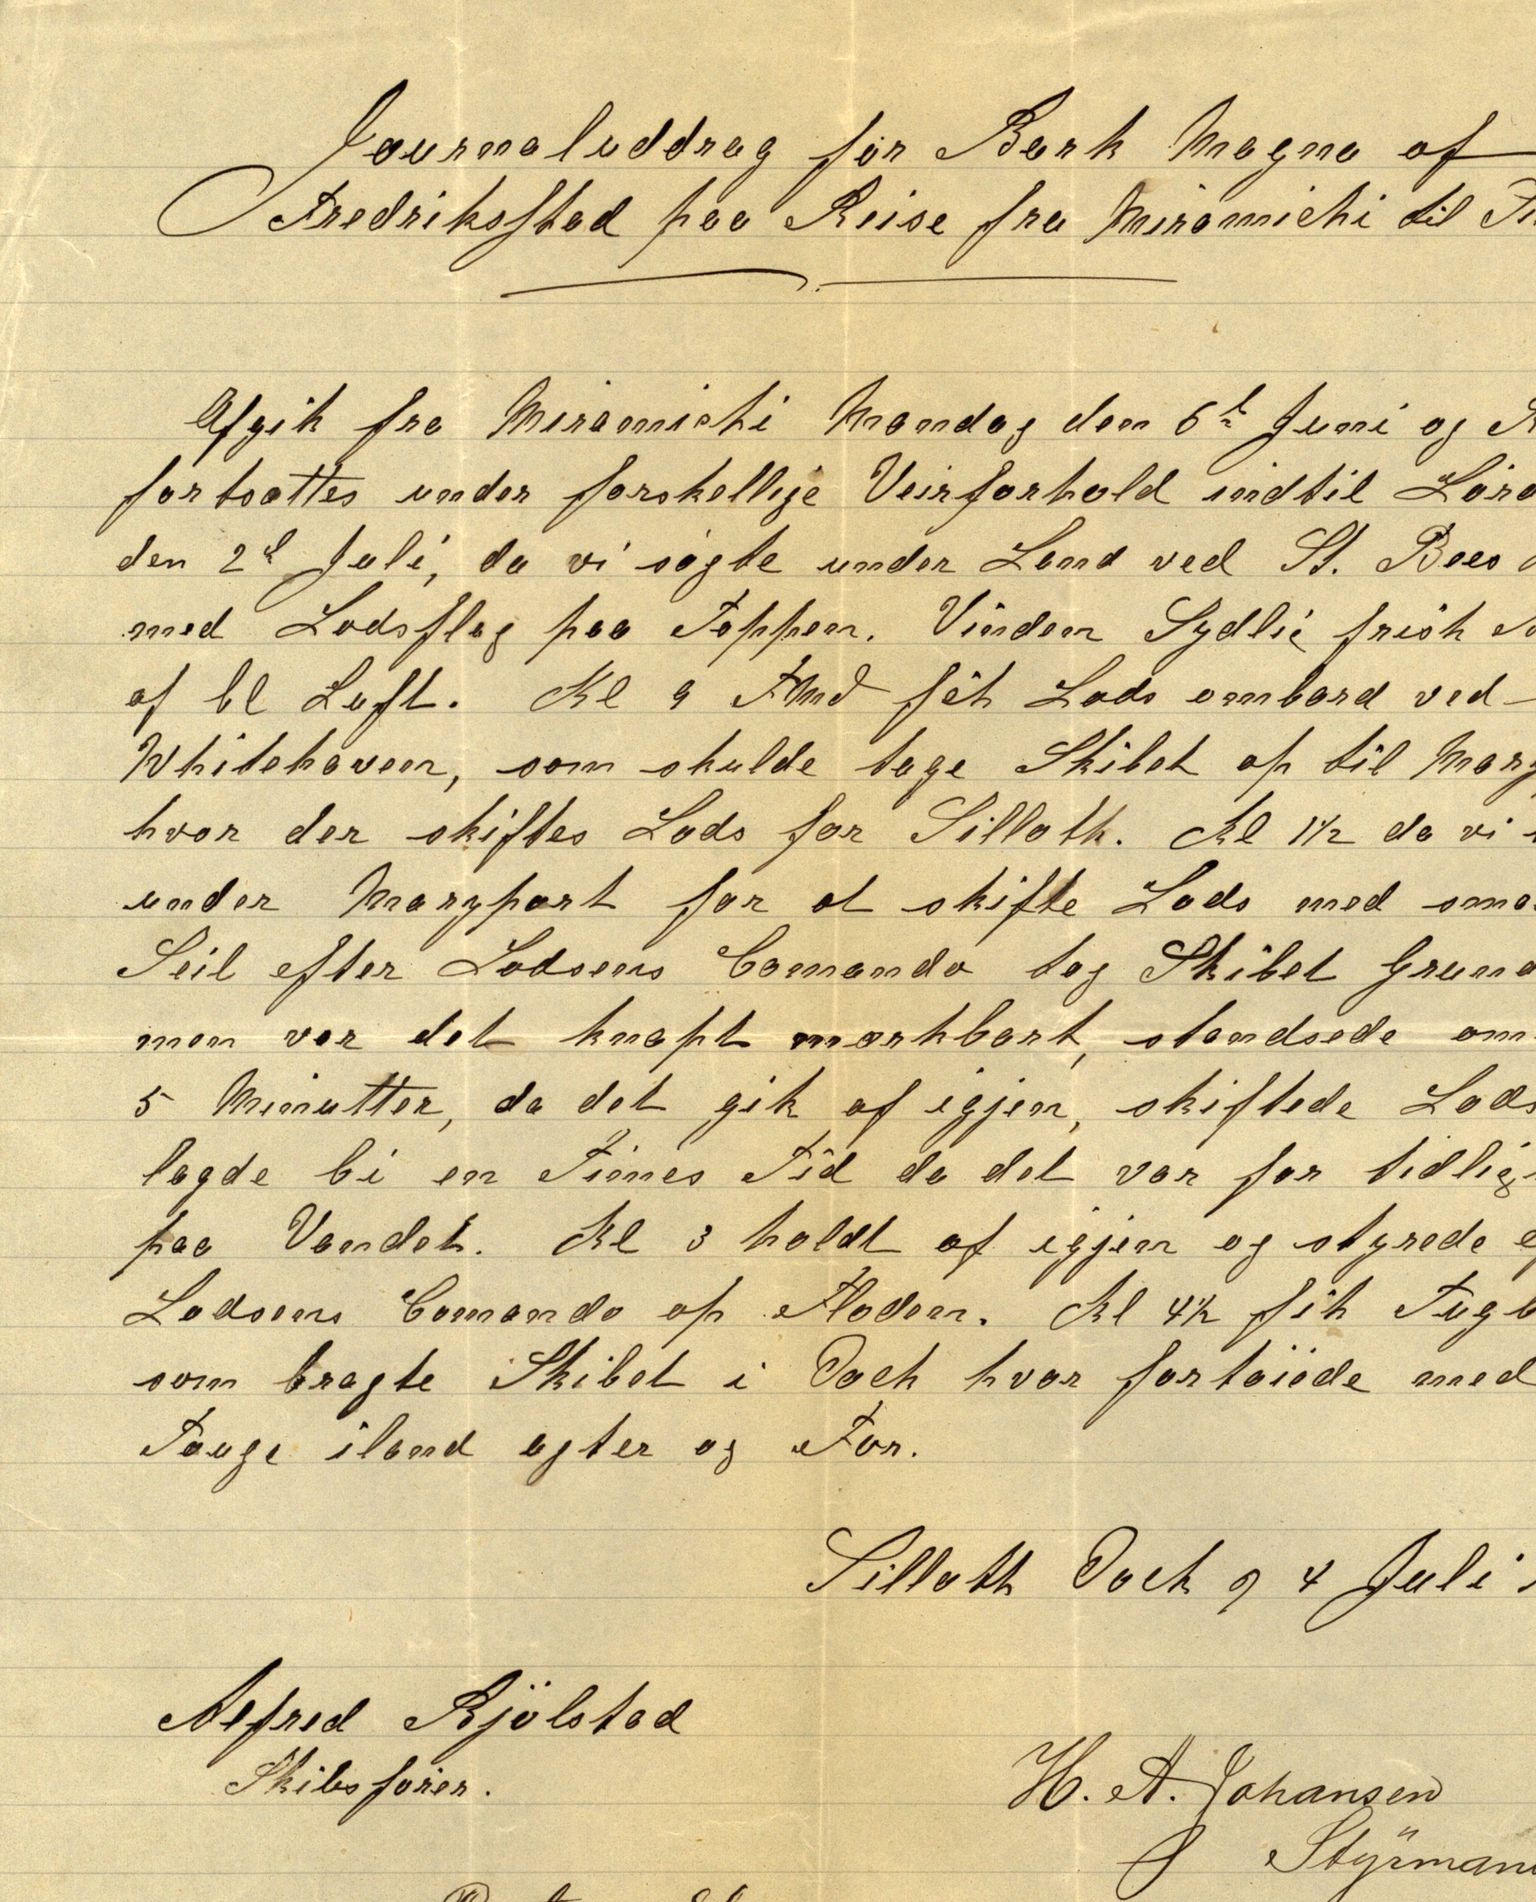 Journaluddrag for Bark Magna af
Fredriksstad paa Reise fra Miramichi til
Afgik fra Miramichi Mandag den 6te Juni og
fortsattes under forskellige Veirforhold indtil
den 2d Juli, da vi søgte under Land ved St. Bees
med Lodsflag paa Toppen. Vinden Sydlig frisk
af bl Luft. Kl 9 FMd fik Lods ombord ved
Whitehaven, som skulde tage Skibet op til
hvor der skiftes Lods for Silloth. Kl 1½ da vi
under Maryport for at skifte Lods med
Seil efter Lodsens Comando tog Skibet
men var det knapt mærkbart, standsede
5 Minutter, da det gik af igjen, skiftede Lods
lagde bi en Times Tid da det var for tidlig
paa Vandet. Kl 3 holdt af igjen og styrede
Lodsens Comando op Floden. Kl 4½ fik
som bragte Skibet i Dock hvor fortøiede med
Touge iland agter og For.
Silloth Dock 4 Juli
Alfred Kjölstad
Skibsfører.
H. A. Johansen
Styrmann